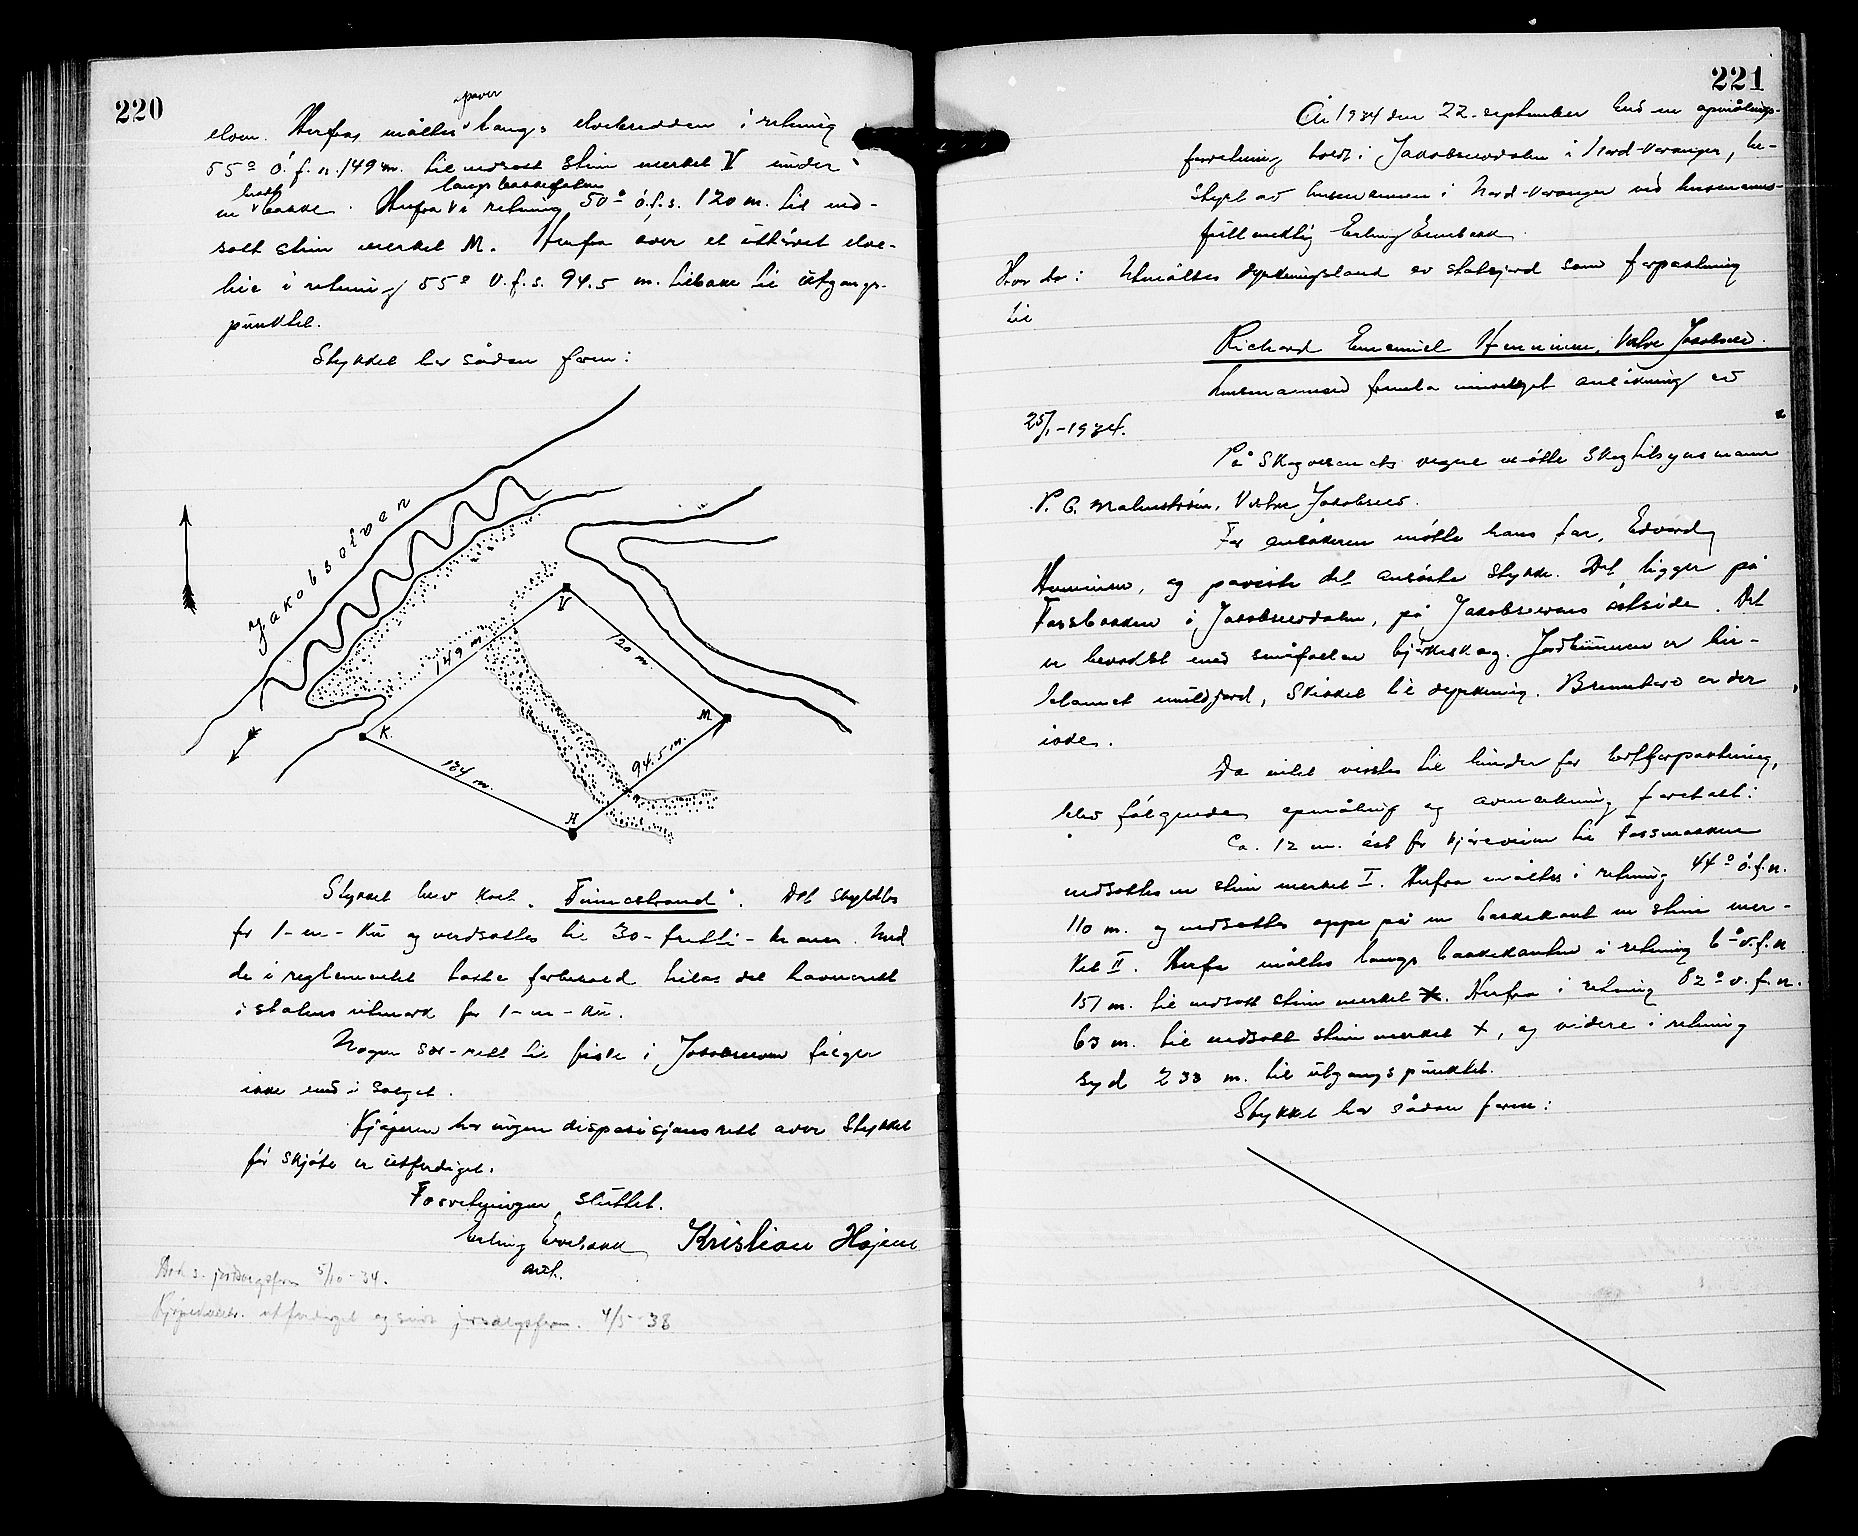 220
elven. Herfra måltes oover langs elvebredden i retning
55° ö. f. n. 149 m. til nedsatt sten merket V under
en bratt bakke. Herfra i retning langs bakkefoten 50° ö.f.s. 120 m. til ned-
satt sten merket M. Herfra over et uttörret elve-
leie i retning 55° V.f.s. 94.5 m. tilbake til utgangs-
punktet.
Stykket har sådan form:
Jakobselven
V
149 m
120 m
K.
M
134 m.
94.5 m.
H
Stykket blev kalt "Finnestrand". Det skyldtes
for 1-en-ku og verdsattes til 30-tretti-kroner. Med
de i reglementet tatte forbehold tillas det havnerett
i statens utmark for 1-en-ku.
Nogen sær-rett til fiske i Jakobselven fölger
ikke med i salget.
Kjöperen har ingen disposisjonsrett over stykket
för skjöte er utferdiget.
Forretningen sluttet.
Erling Evebakk Kristian Hojem
aut.
Med s. jordsalgsform 5/10-34.
utferdiget og sendt jordsalgsform. 4/5-38
221
År 1934 den 22. september blev en opmålings-
forretning holdt i Jakobselvdalen i Nord-Varanger, be-
styrt av lensmannen i Nord-Varanger ved lensmanns-
fullmektig Erling Evebakk.
Hvor da: Utmåltes dyrkningsland av statsjord som forpaktning
til
Richard Emanuel Henninen, Vestre Jakobselv.
Lensmannen fremla innvilget ansökning av
25/1-1934.
På skogvesenets vegne mötte skogtilsynsmann
P. C. Malmström, Vestre Jakobselv.
For ansökeren mötte hans far, Edvard
Henninen, og påviste det ansökte stykke. Det ligger på
Fossbakken i Jakobselvdalen, på Jakobselvens östside. Det
er bevokset med småfallen bjerkeskog. Jordbunnen er ler-
blannet muldjord, skikket til dyrkning. Brennbart er der
ikke.
Da intet vistes til hinder for bortforpaktning,
blev fölgende opmåling og avmerkning foretatt:
Ca. 12 m. öst for kjöreveien til Fossmoskene
nedsattes en sten merket I. Herfra måltes i retning 44° ö.f.n.
110 m. og nedsattes oppe på en bakkekant en sten mer-
ket II. Herfra måltes langs bakkekanten i retning 6° v.f.n
151 m. til nedsatt sten merket X. Herfra i retning 82° v.f.n.
63 m. til nedsatt sten merket +, og videre i retning
syd 233 m. til utgangspunktet.
Stykket har sådan form: